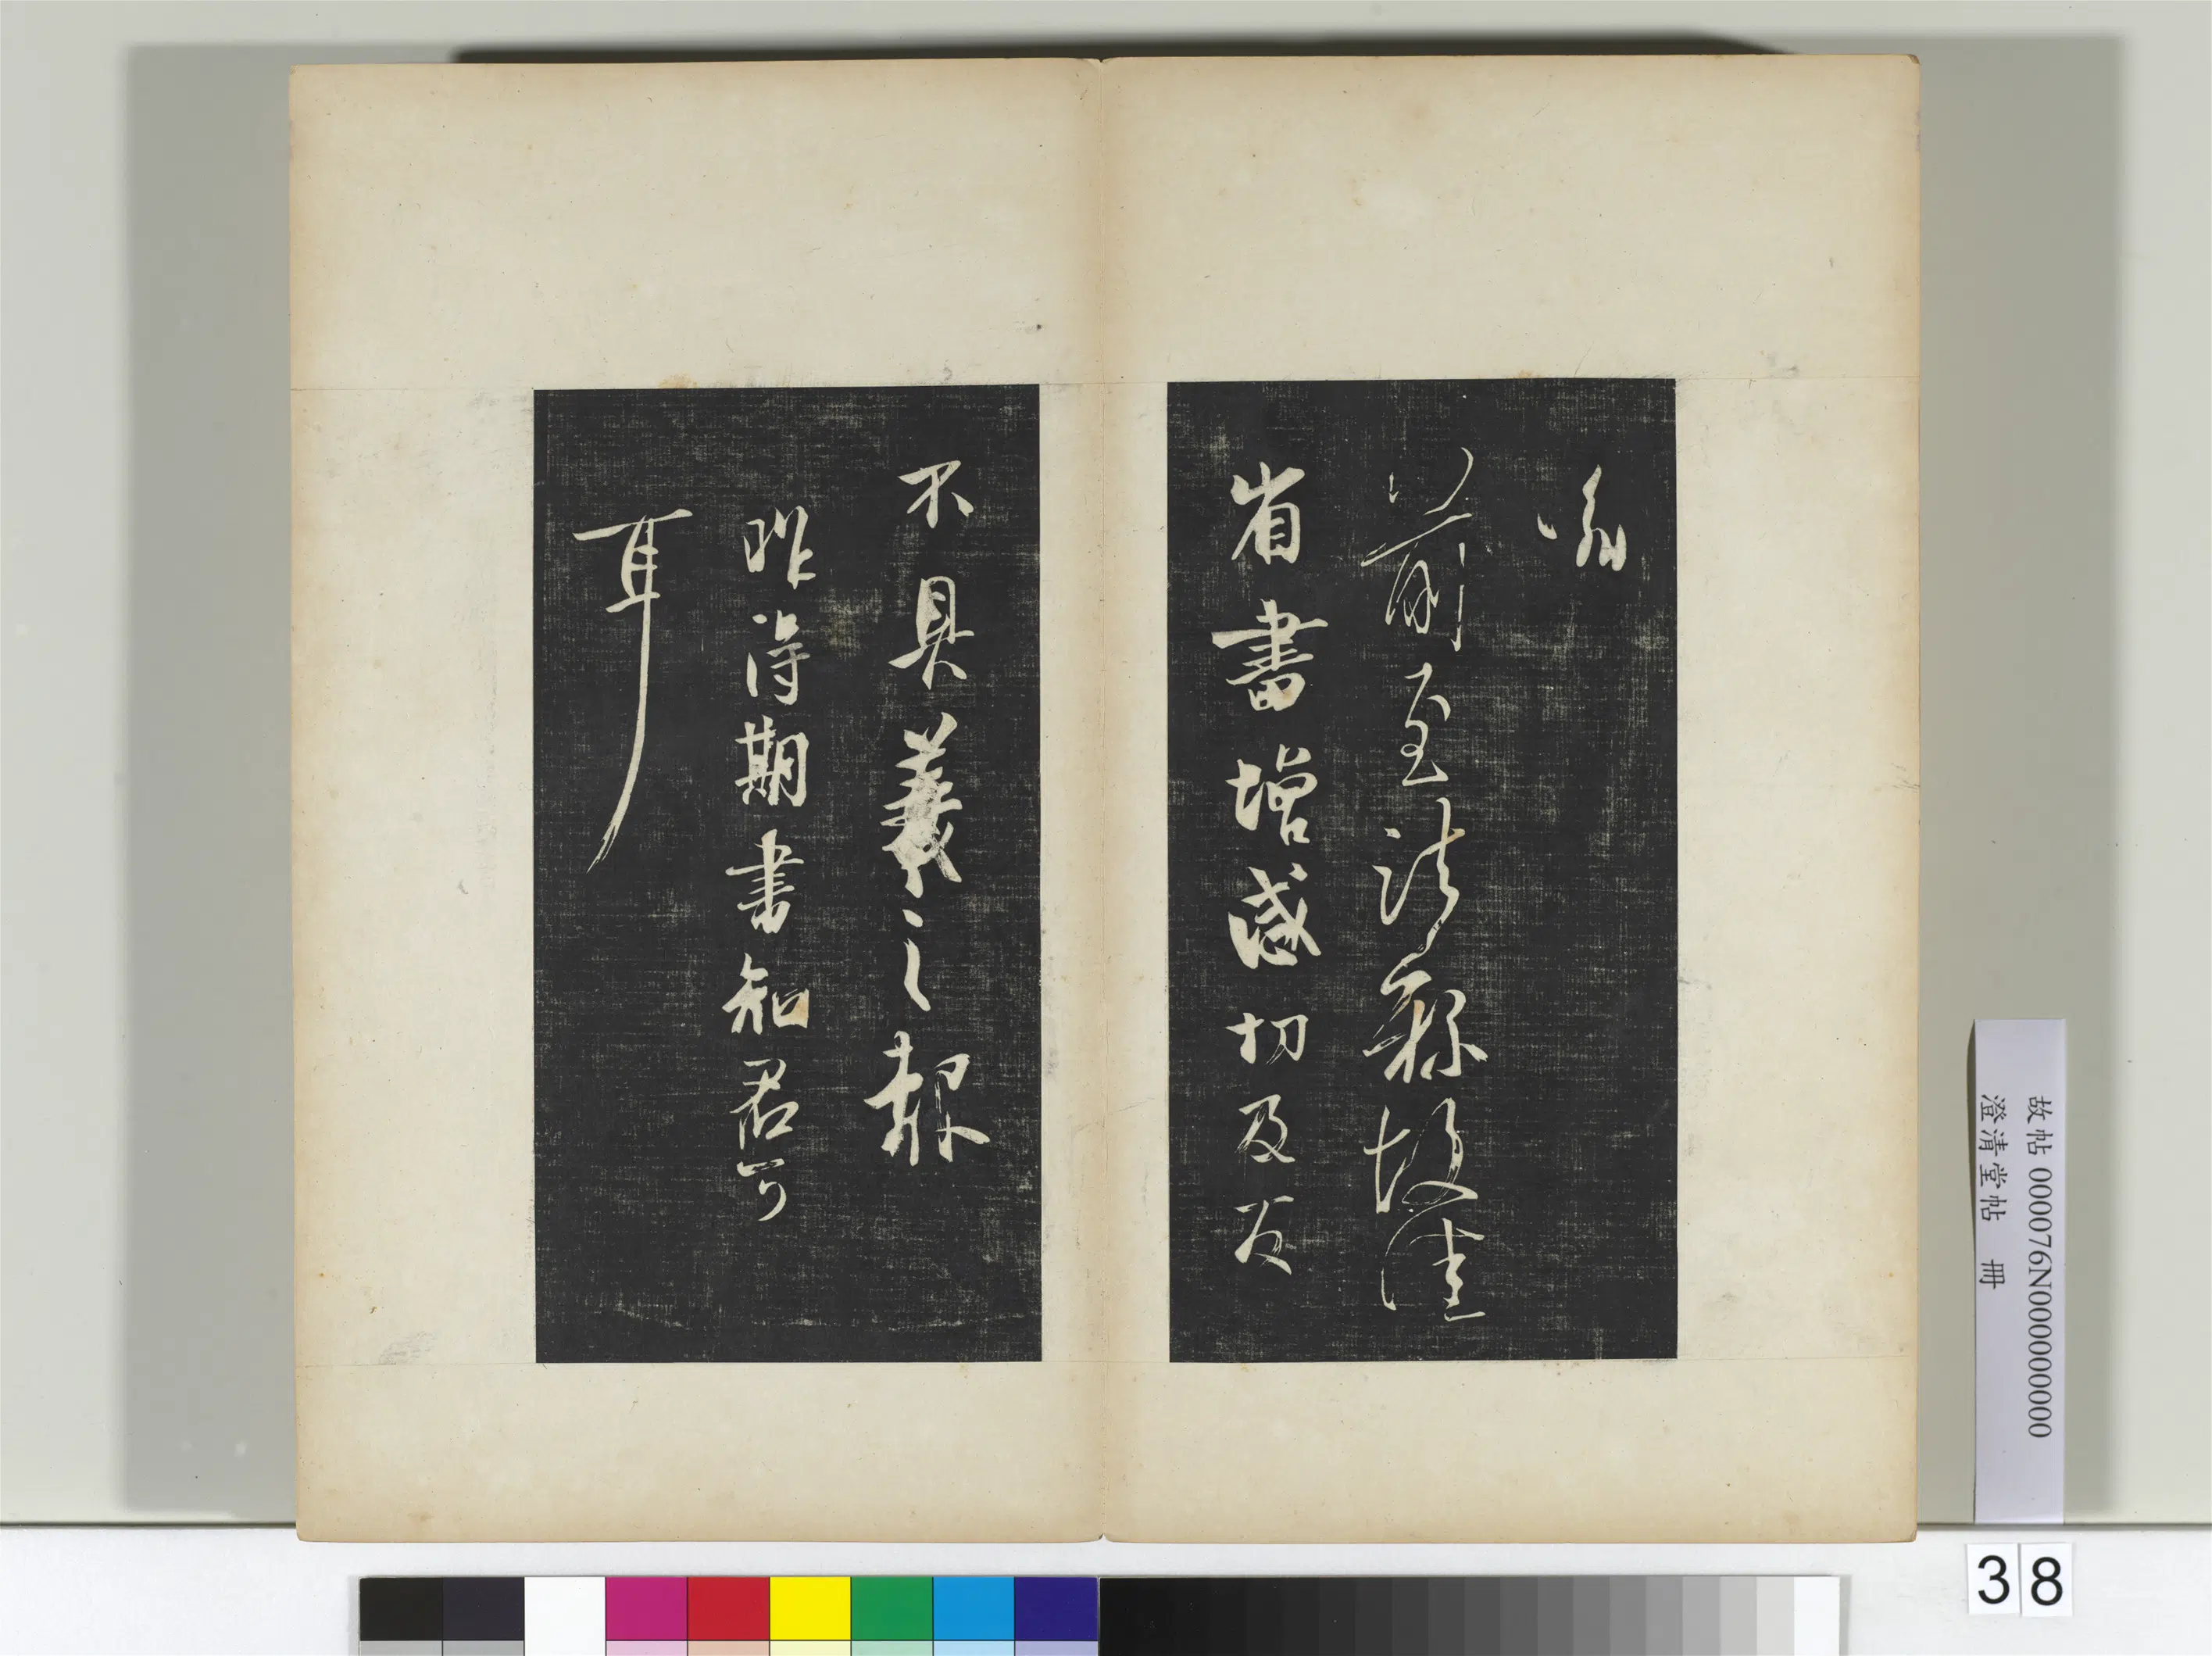 喻
前至 故佳
省書增感切及
不具羲之報
昨得期書知君可
耳
故帖 000076N000000000
澄清堂帖 冊
38